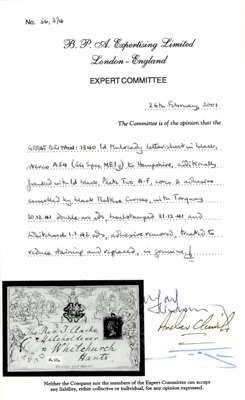 No. 26,
B. P. A. Expertising Limited
London - England
EXPERT COMMITTEE
26th February, 2001
The Committee is of the opinion that the
GREAT BRITAIN: 1840 1d Mulready letter sheet in black,
A24 to Hampshire, additionally
franked with 1d black, Plate Two A-F, cover & adhesive
cancelled by black Maltese Crosses, with Torquay
20.12.41 double arc cds, backstamped 21.12.41 and
Whitchurch cds, adhesive removed, treated to
reduce staining and replaced, is genuine.
Rev T. Clarke
Whitchurch
Hants
Neither the Company nor the members of the Expert Committee can accept
any liability, either collective or individual, for any opinion expressed.